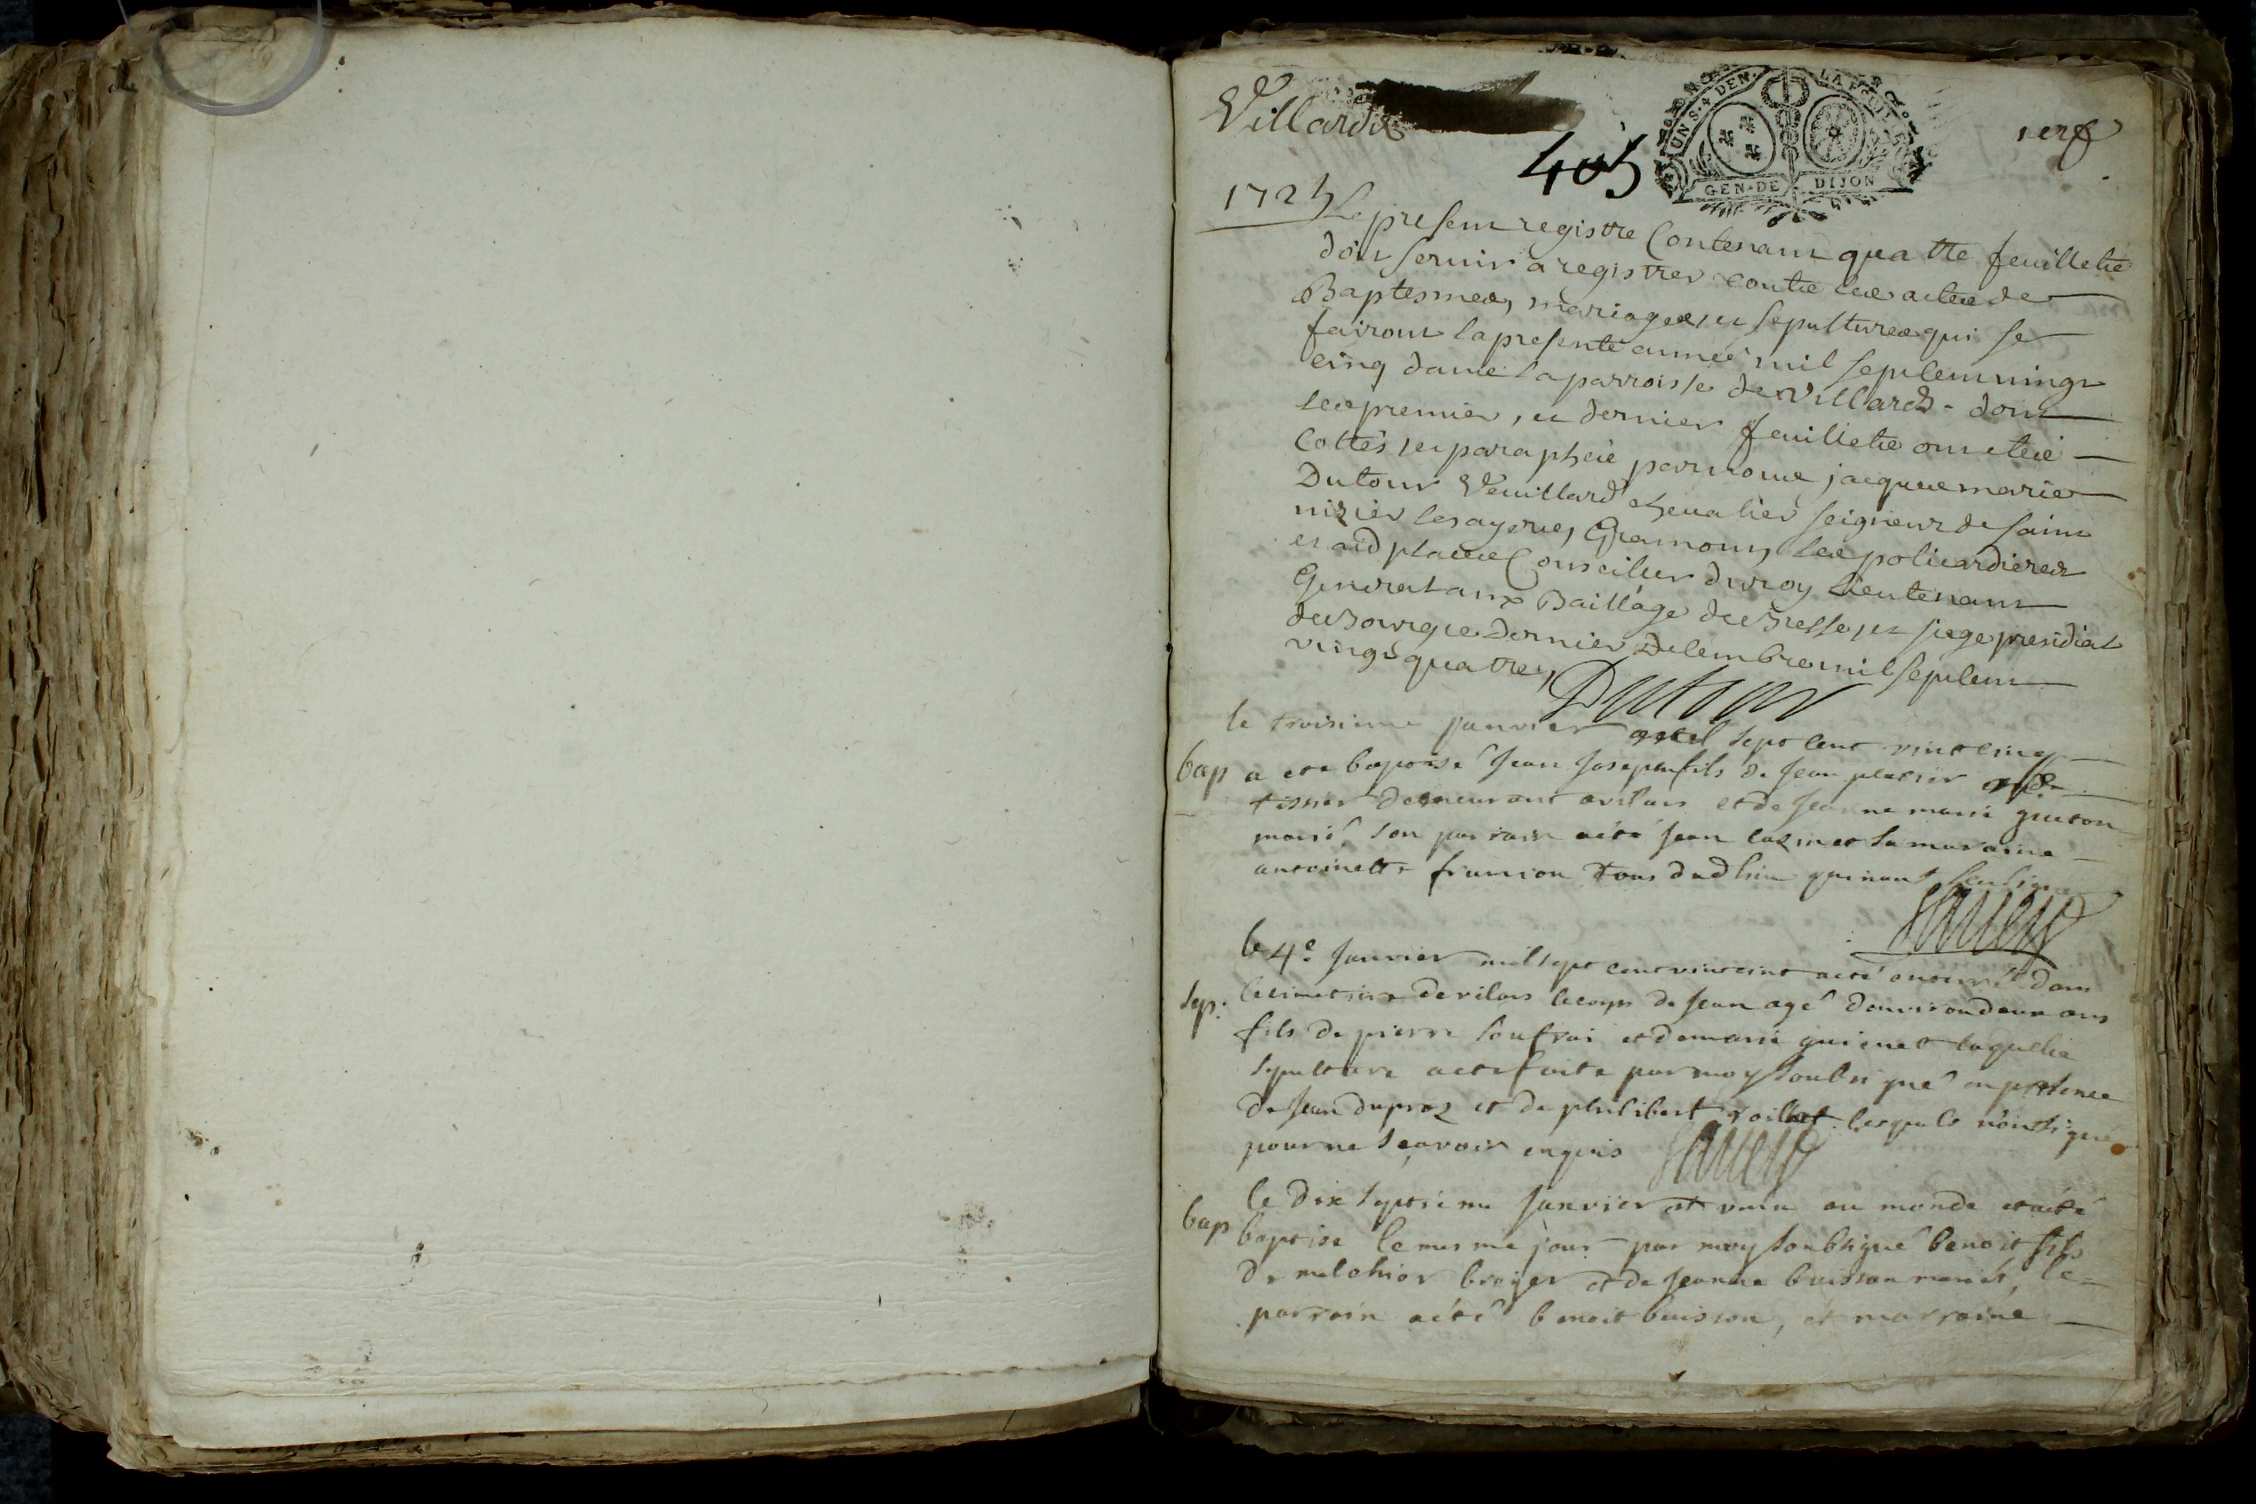 Villards
405
UN S. 4 DEN.
GEN · DE DIJON
1er f
1725
Le present registre Contenant quattre feuillets
doit servir a registrer toutte les actes de
Baptesmes, mariages, et sepultures qui se
fairont la presente année mil sept cent vingt
cinq dans la parroisse de Villards - dont
les premier, et dernier feuillets ont etés
Cottés et paraphés par nous jacques marie
Dutour Veuillard chevalier seigneur de saint
nizier Gramont, les policardieres
et aud places Conseiller du roy Lieutenant
General aux Baillage de Bresse, et siege presidial
de Bourg ce Dernier Decembre mil sept cent
vingt quattre,
Dutour
le troisieme janvier mil sept cent vint cinq
bap a ete baptisé jean joseph fils de jean
tissier demeurant a vilars et de jeanne marie gueton
marié son parrain a été jean et sa maraine
antoinette tous dud lieu qui nont sceu signer
le 4e janvier mil sept cent vint cint a eté enterré dans
sep. le cimetiere de vilars le corps de jean agé d'environ deux ans
fils de pierre soufrai et de marie guienet laquelle
sepulture a ete faite par moy soubsigné en presence
de jean duproz et de philibert lesquels n'ont signé
pour ne sçavoir enquis
le dix septieme janvier est venu au monde et a eté
bap baptise le mesme jour par moy soubsigné benoit fils
de melchior broyer et de jeanne buisson mariés, le
parrain a eté benoit buisson, et marraine